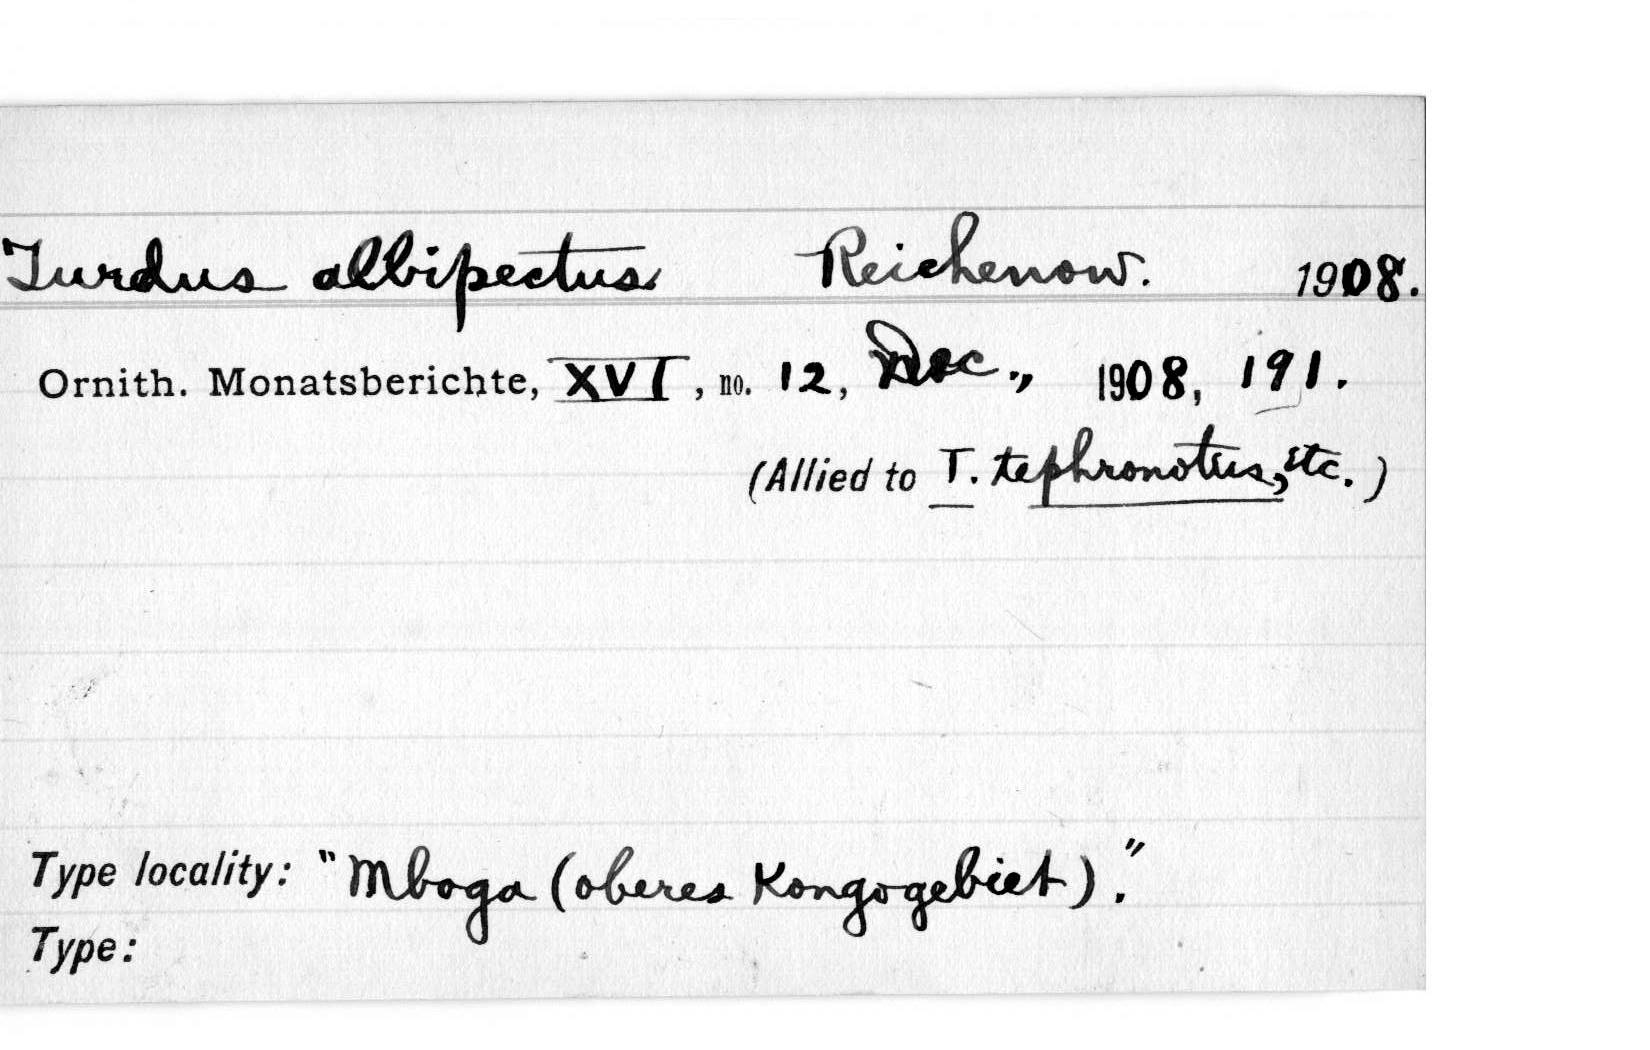 Turdus albipectus Reichenow. 1908.
Ornith. Monatsberichte, XVI, no. 12, Dec., 1908, 191.
(Allied to T. tephronotus, etc.)
Type locality: "Mboga (oberes Kongogebiet)."
Type: